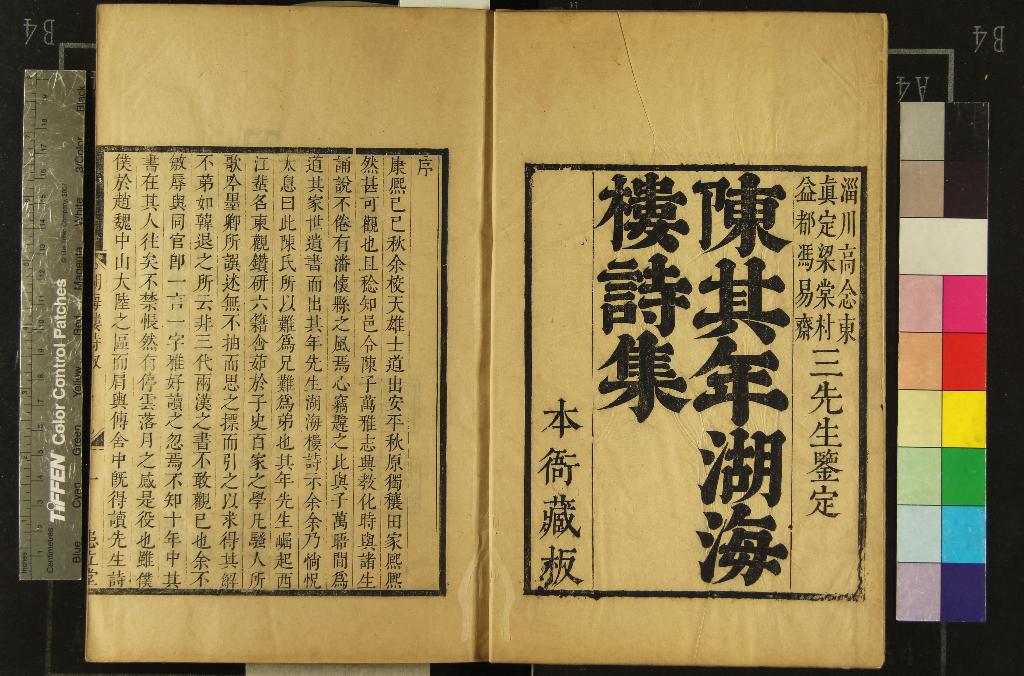 淄川高念東
真定梁棠村
益都馮易齋
三先生鑒定
陳其年湖海
樓詩集
本衙藏板
序
康熙己巳秋余校天雄士道出安平秋原獨穰田家熙熙
然甚可觀也且稔知邑令陳子萬雅志典教化時與諸生
誦說不倦有潘懷縣之風焉心竊韙之比與子萬聒間爲
道其家世遺書而出其年先生湖海樓詩示余余乃惝怳
太息曰此陳氏所以難爲兄難爲弟也其年先生崛起西
江蜚名東觀鑽研六籍含茹於子史百家之學凡騷人所
歌吟墨卿所譔述無不抽而思之摽而引之以求得其解
不第如韓退之所云非三代兩漢之書不敢觀已也余不
敏辱與同官即一言一字雅好讀之忽焉不知十年中其
書在其人往矣不禁悵然有停雲落月之感是役也雖僕
僕於趙魏中山大陸之區而肩輿傳舍中旣得讀先生詩
TIFFEN Color Control Patches
Blue
Cyan
Green
Yellow
Red
Magenta
White
3/Color
Black
Inches
Centimetres
B4
B4
A4